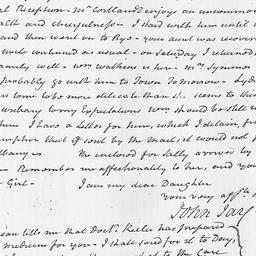 al Reception. Mr Cortlandt enjoys an uncommon
alth and chearfulness — I staid with him until
and then went on to Rye — your aunt was recover
and continued as usual — on Saturday I returned
amily well — Wm Watkins is her — Mr Symmer
probably go with him to Town ToMorrow —
us to me to be more delicate than she seems to this
contrary to my Expectations Wm should be still
him I have a Letter for him, which I detain, fr
umption that if sent by the Mail, it would not f
Albany — The enclosed for Sally arrived by
— Remember me affectionately to her, and you
— Girl — I am my dear Daughter
your very affte
John Jay
san tells me that Doctr. Keele has prepared
medicine for you — I shall send for it to Day,
to the Care